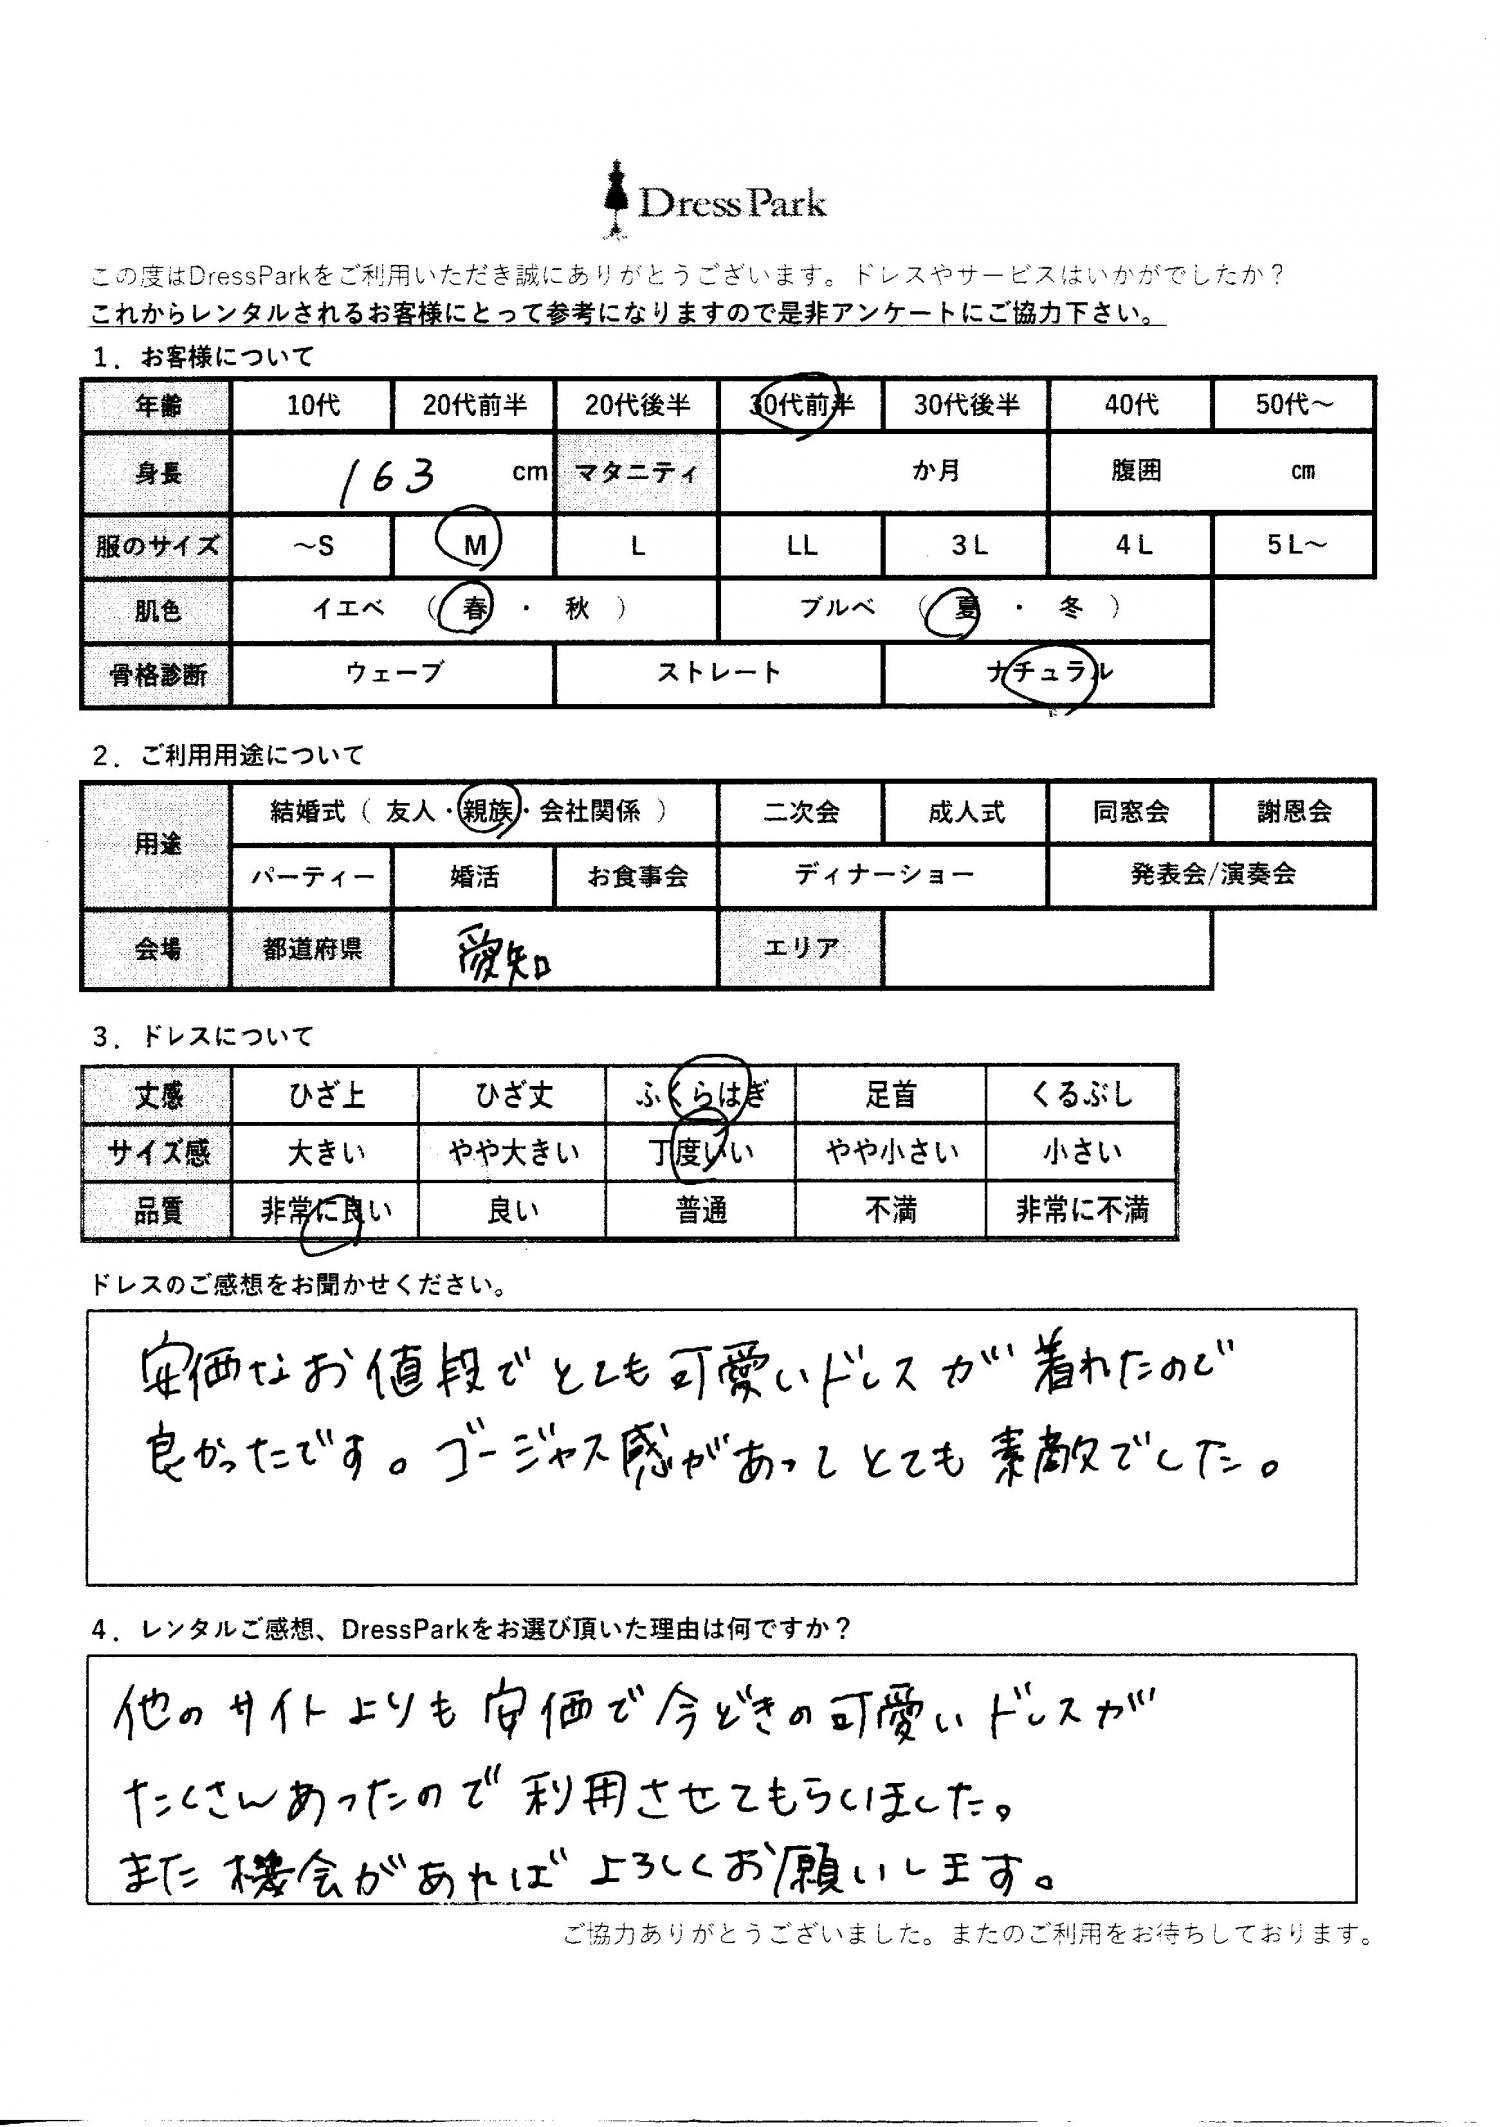 DressPark
この度はDressParkをご利用いただき誠にありがとうございます。ドレスやサービスはいかがでしたか？
これからレンタルされるお客様にとって参考になりますので是非アンケートにご協力下さい。
1．お客様について
年齢 10代 20代前半 20代後半 30代前半 30代後半 40代 50代～
身長 163 cm マタニティ か月 腹囲 cm
服のサイズ ～S M L LL 3L 4L 5L～
肌色 イエベ （ 春 ・ 秋 ） ブルベ （ 夏 ・ 冬 ）
骨格診断 ウェーブ ストレート ナチュラル
2．ご利用用途について
用途 結婚式（ 友人・親族・会社関係 ） 二次会 成人式 同窓会 謝恩会
パーティー 婚活 お食事会 ディナーショー 発表会/演奏会
会場 都道府県 愛知 エリア
3．ドレスについて
丈感 ひざ上 ひざ丈 ふくらはぎ 足首 くるぶし
サイズ感 大きい やや大きい 丁度いい やや小さい 小さい
品質 非常に良い 良い 普通 不満 非常に不満
ドレスのご感想をお聞かせください。
安価なお値段でとても可愛いドレスが着れたので
良かったです。ゴージャス感があってとても素敵でした。
4．レンタルご感想、DressParkをお選び頂いた理由は何ですか？
他のサイトよりも安価で今どきの可愛いドレスが
たくさんあったので利用させてもらいました。
また機会があればよろしくお願いします。
ご協力ありがとうございました。またのご利用をお待ちしております。